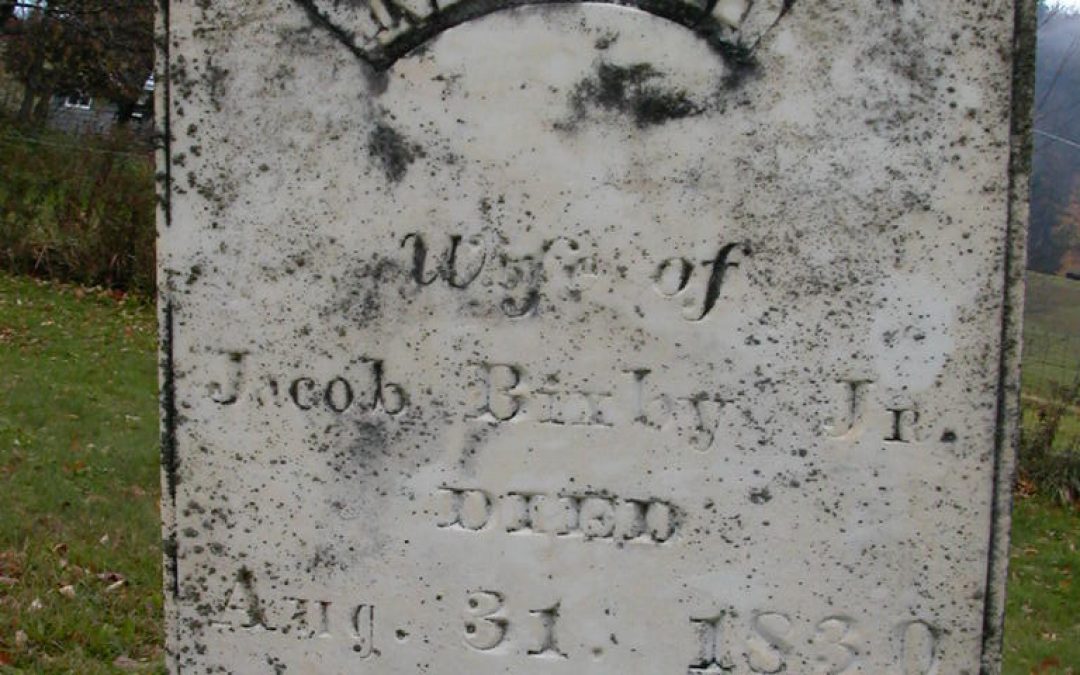 Wife of
Jacob Bixby Jr.
DIED
Aug. 31. 1830